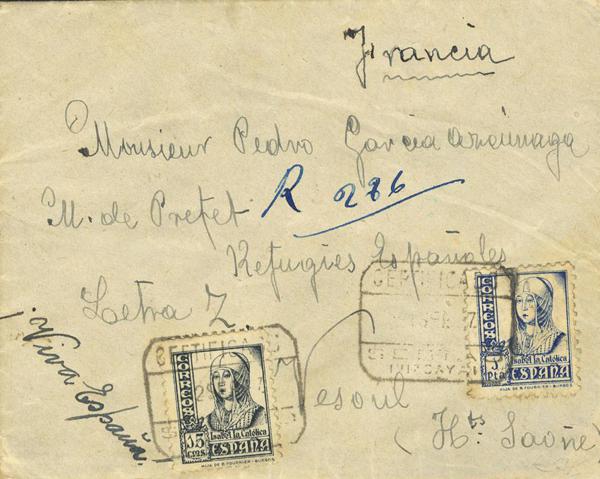 Francia
Monsieur Pedro Garcia
M. de Prefet
R 286
Refugies Españoles
Letra Z
¡Viva España!
Vesoul
(Hts Saône)
CERTIFICADO
VIZCAYA
CERTIFICADO
CORREOS
15
CTS.
Isabel la Católica
ESPAÑA
HIJA DE B. FOURNIER - BURGOS
CORREOS
Isabel la Católica
PTA
ESPAÑA
HIJA DE B. FOURNIER - BURGOS